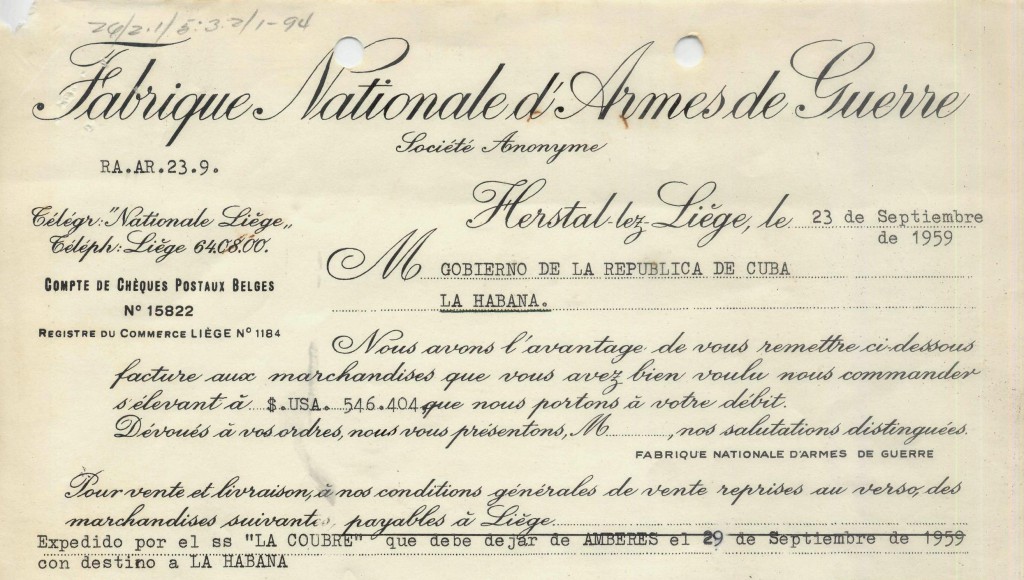 24/2.1/5:3.2/1-94
Fabrique Nationale d'Armes de Guerre
Société Anonyme
RA.AR.23.9.
Herstal-lez-Liége, le 23 de Septiembre
de 1959
Télégr: "Nationale Liége„
Téléph: Liége 64.08.00.
M GOBIERNO DE LA REPUBLICA DE CUBA
LA HABANA.
COMPTE DE CHÈQUES POSTAUX BELGES
N° 15822
REGISTRE DU COMMERCE LIÈGE N° 1184
Nous avons l'avantage de vous remettre ci-dessous
facture aux marchandises que vous avez bien voulu nous commander
s'élevant à $.USA. 546.404,- que nous portons à votre débit.
Dévoués à vos ordres, nous vous présentons, M , nos salutations distinguées.
FABRIQUE NATIONALE D'ARMES DE GUERRE
Pour vente et livraison, à nos conditions générales de vente reprises au verso, des
marchandises suivantes, payables à Liége.
Expedido por el ss "LA COUBRE" que debe dejar de AMBERES el 29 de Septiembre de 1959
con destino a LA HABANA